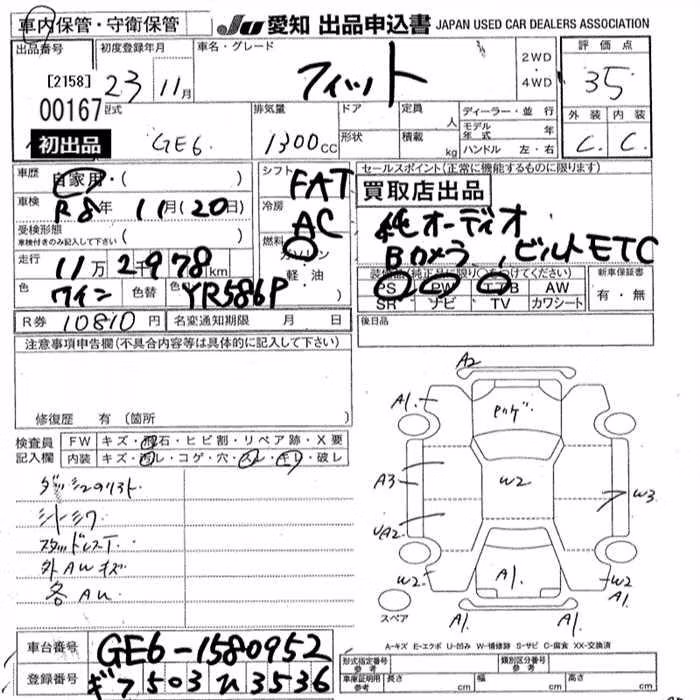 車内保管・守衛保管 JU 愛知 出品申込書 JAPAN USED CAR DEALERS ASSOCIATION
出品番号 初度登録年月 車名・グレード 2WD・4WD 評価点
[2158] 23 11月 フィット 3.5
00167 型式 排気量 ドア 定員 人 ディーラー・並行 外装 内装
初出品 GE6 1300cc 形状 積載 kg モデル年式 年 C. C.
ハンドル 左・右
車歴 自家用・( ) シフト FAT セールスポイント(正常に機能するものに限ります)
車検 R8年 11月(20日) 冷房 AC 買取店出品
受検形態 車検付きのみ記入して下さい ( ) 燃料 ガソリン 軽油 純オーディオ
走行 11万2千978km Bカメラ、ビルトETC
色 ワイン 色替 色No. YR586P 装備品(純正品に限り○をつけてください) 新車保証書
PS PW エアB AW 有・無
SR ナビ TV カワシート
R券 10810円 名変通知期限 月 日 後日品
注意事項申告欄(不具合内容等は具体的に記入して下さい)
修復歴 有 (箇所 )
検査員記入欄 FW キズ・飛石・ヒビ割・リペア跡・X要
内装 キズ・汚レ・コゲ・穴・スレ・キレ・破レ
シートシワ
スタッドレスT.
外AWキズ
各AU
A2
A1. Pハゲ
A3 W2 W3
UA2
W2 A1. W2
A1. A1. A1.
スペア
A-キズ E-エクボ U-凹み W-補修跡 S-サビ C-腐食 XX-交換済
車台番号 GE6-1580952 形式指定番号 参考 類別区分番号 参考
登録番号 503ひ3536 車庫証明用 参考 長さ cm 幅 cm 高さ cm